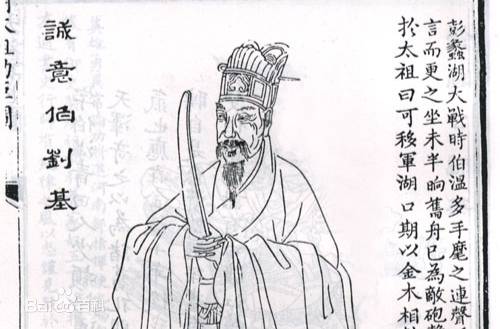 彭蠡湖大戰時伯溫多手麾之連聲
言而更之坐未半晌舊舟已為敵砲
於太祖曰可移軍湖口期以金木相
誠意伯劉基
太祖功臣圖
Baidu百科